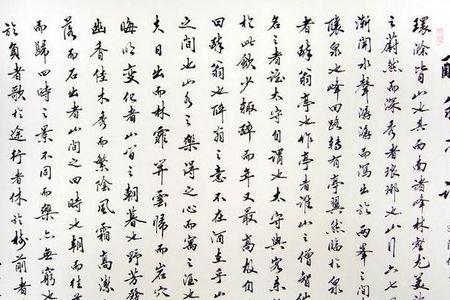 醉翁亭記
環滁皆山也其西南諸峰林壑尤美
之蔚然而深秀者琅琊也山行六七
漸聞水聲潺潺而瀉出於兩峯之間
釀泉也峰回路轉有亭翼然臨於泉
者醉翁亭也作亭者誰山之僧智仙
名之者誰太守自謂也太守與客來
於此飲少輒醉而年又最高故自
曰醉翁也醉翁之意不在酒在乎山
之間也山水之樂得之心而寓之酒也
夫日出而林霏開雲歸而岩穴
晦明變化者山間之朝暮也野芳發
幽香佳木秀而繁陰風霜高潔
落而石出者山間之四時也朝而往
而歸四時之景不同而樂亦無窮也
於負者歌於途行者休於樹前者